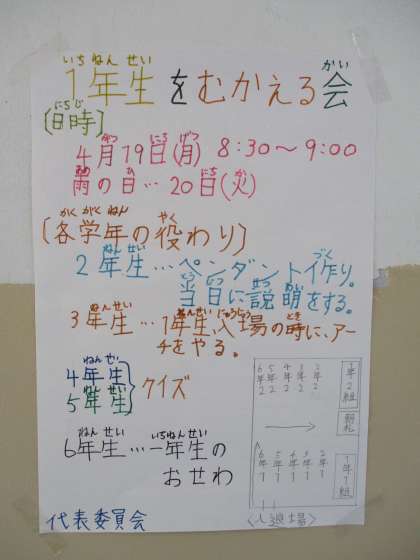 1年生をむかえる会
〔日時〕
4月19日(月) 8:30〜9:00
雨の日…20日(火)
〔各学年の役わり〕
2年生…ペンダント作り。
当日に説明をする。
3年生…1年生入場の時に、アー
チをやる。
4年生
5年生
クイズ
6年生…一年生の
おせわ
6年2 5年2 4年2 3年2 2年2
1年2組
朝礼
6年1 5年1 4年1 3年1 2年1
1年1組
〈入退場〉
代表委員会